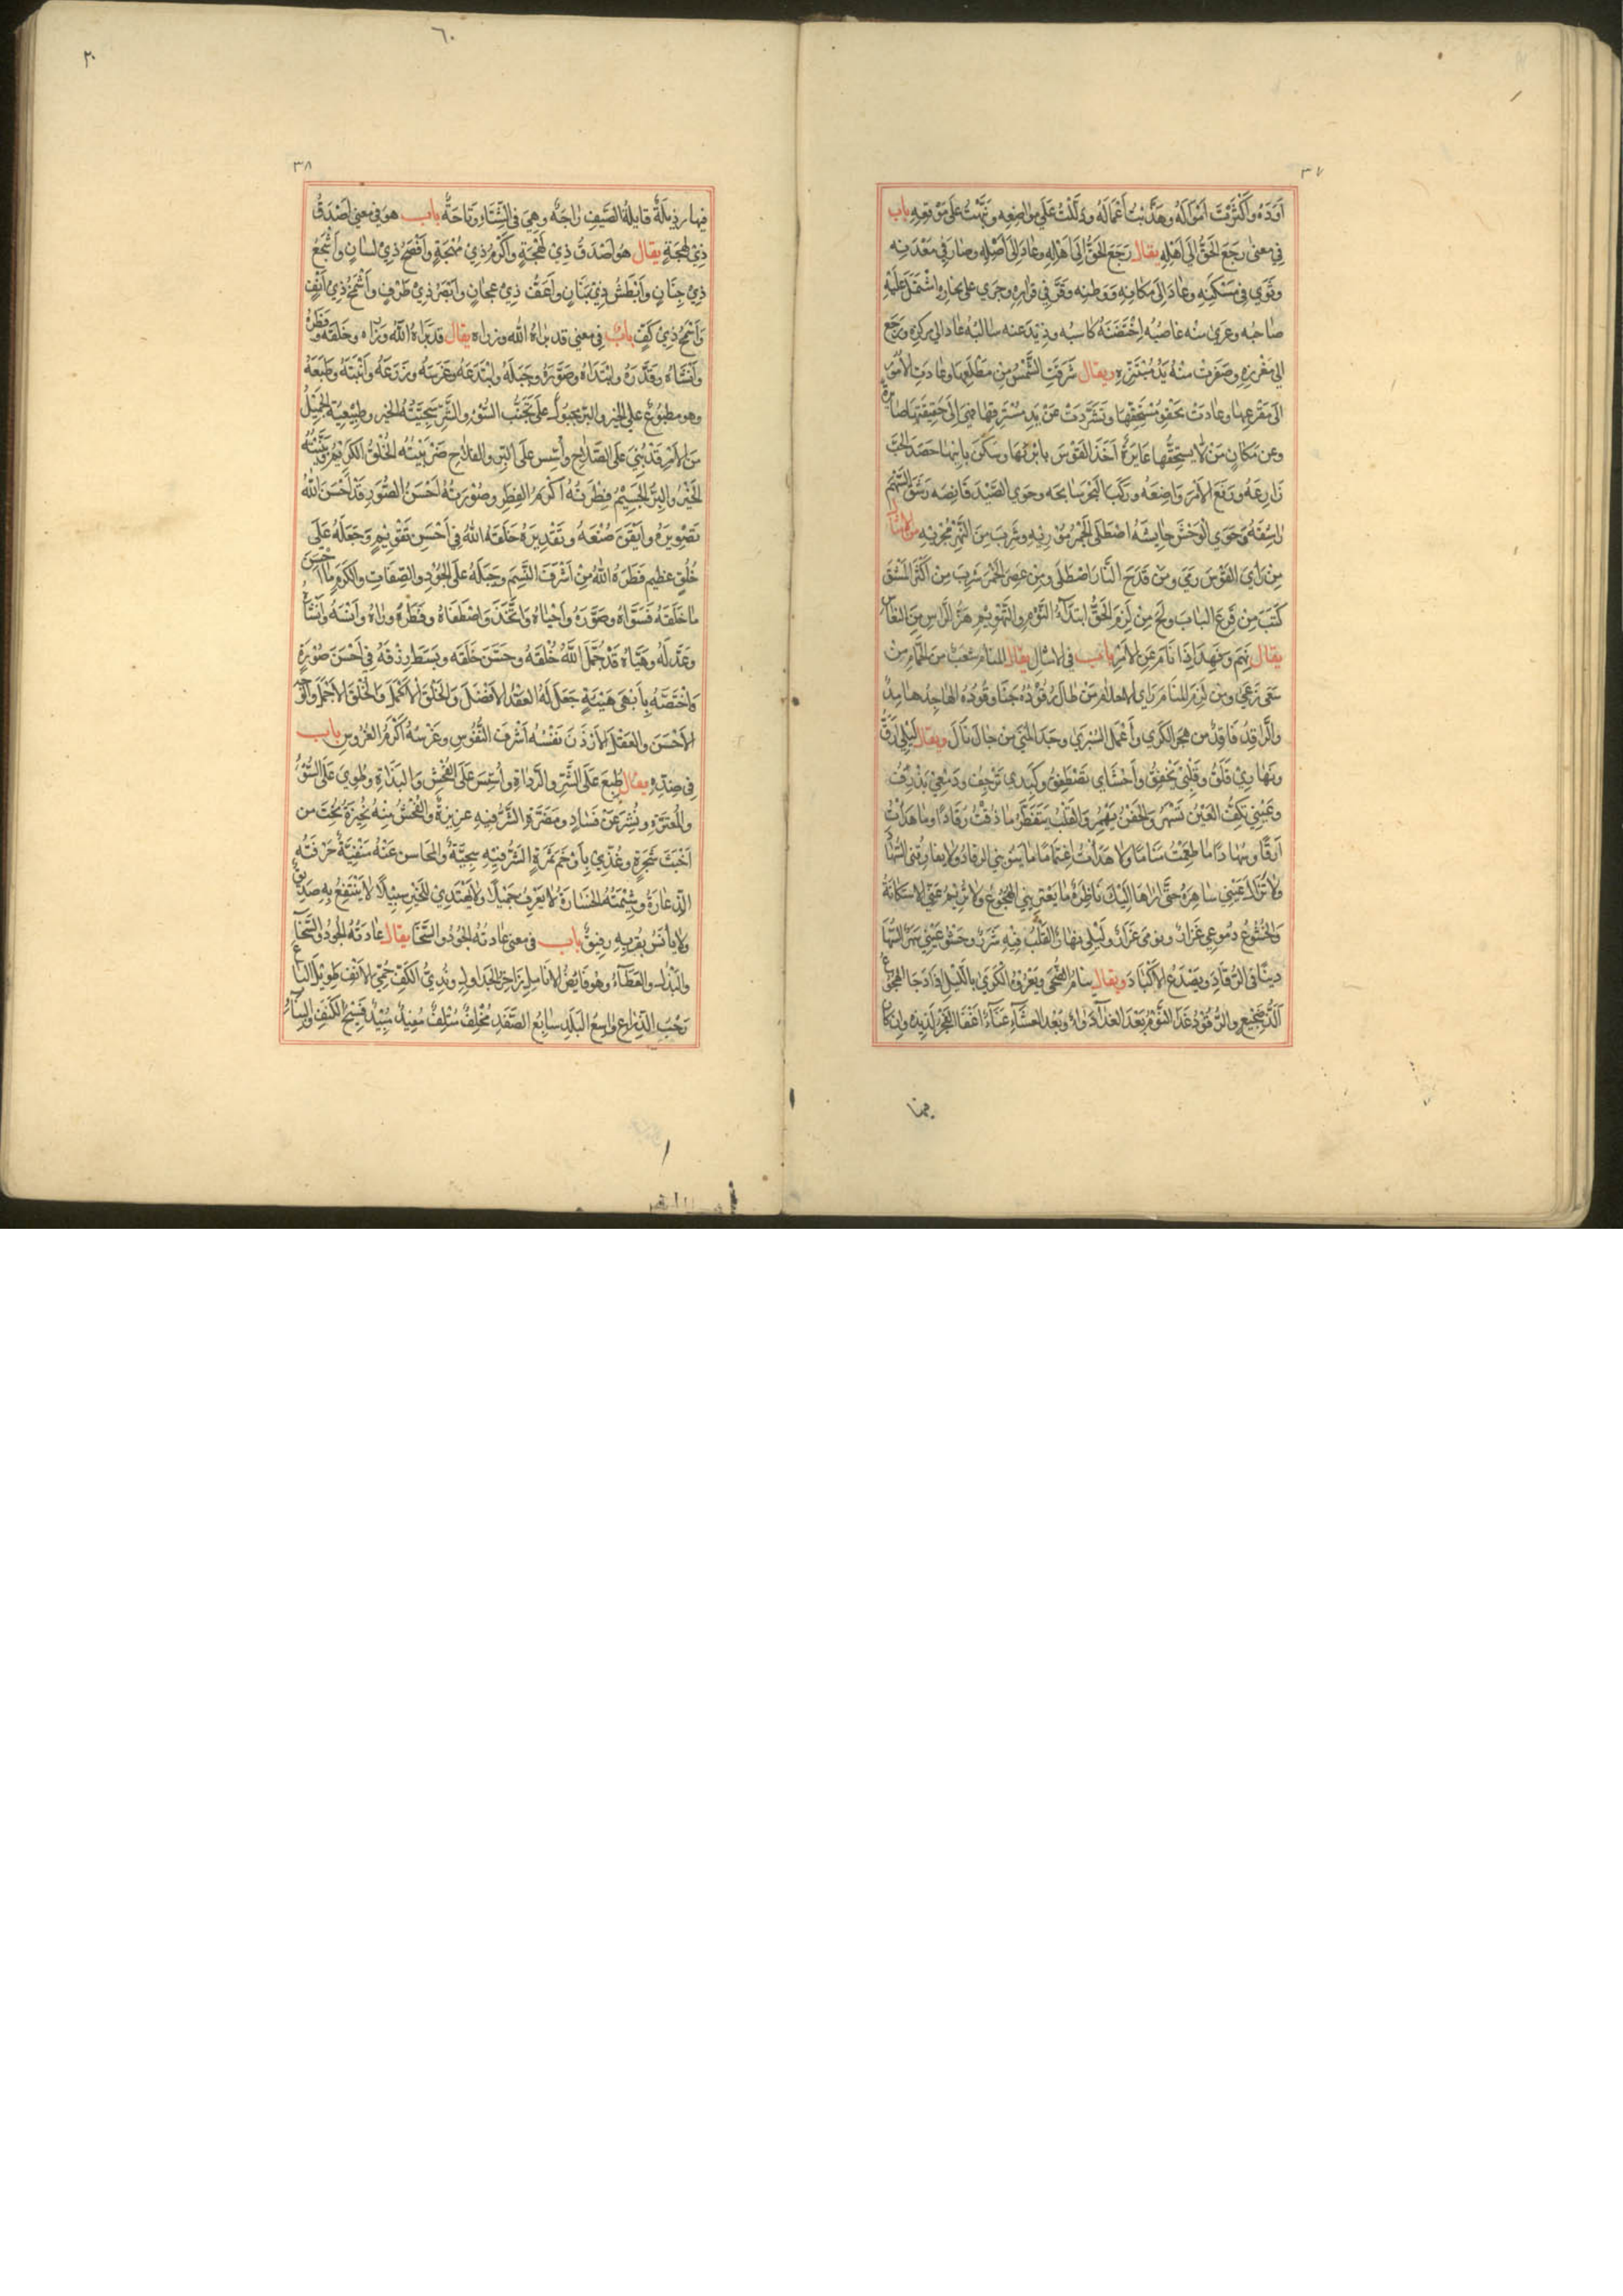 ٣٧
أَوَدَهُ وأَكْثَرْتَ أَمْوَالَهُ وهَذَّبْتُ أَعْمَالَهُ ودَلَلْتُ عَلَى مَوَاضِعِه ونَبَّهْتُ عَلَى مَوْقِعِهِ باب
فِي مَعْنَى رَجَعَ الْحَقُّ إِلَى أَهْلِهِ يقال رَجَعَ الْحَقُّ إِلَى أَهْلِهِ وعَادَ إِلَى أَصْلِهِ وصَارَ فِي مَعْدَنِه
وثَوَى فِي مَسْكَنِهِ وعَادَ إِلَى مَكَانِهِ ووَطَنِه وقَرَّ فِي قَرَارِهِ وجَرَى عَلَى اشْتَمَلَ عَلَيْهِ
صَاحِبُه وعَرِيَ مِنْهُ غَاصِبُه اِحْتَضَنَهُ كَاسِبُه وذِيدَ عنه سَالِبُه عَادَ الى مركزه ورَجَعَ
الى مَغْرِزِهِ وصَفِرَتْ مِنْهُ يَدُ مُبْتَزِّهِ ويقال شَرَقَتِ الشَّمْسُ مِنْ مَطْلَعِهَا وعَادَتِ الأُمُورُ
الى مَفْزَعِهَا وعَادَتْ مُسْتَحِقِّهَا وتَشَرَّدَتْ عَنْ يَدِ مُسْتَرِقِهَا إِلَى حَقِيقَتِهَا صَائِرَةً
وعن مَكَانِ مَنْ لَا يَسْتَحِقُّهَا عَابِرَةً أَخَذَ الْقَوْسَ بَارِيهَا وسَكَنَ بَانِيهَا حَصَدَ الحَبَّ
زَارِعُهُ ورَفَعَ الأَمْرَ وَاضِعُهُ ورَكِبَ الْبَحْرَ سَابِحُه وحَوَى الصَّيْدَ قَانِصُه رَشَقَ السَّهْمَ
رَاشِقُهُ وحَوَى الْوَحْشَ حَايِشُهُ اصْطَلَى الْجَمْرَ مُورِيهِ وشَرِبَ مِنَ النَّهْرِ مُجْرِيهِ من الامثال
مِنْ الْقَوْسَ رَمَى ومَنْ قَدَحَ النَّارَ اصْطَلَى ومِنْ عَصَرَ الْخَمْرَ شَرِبَ مِنْ أَكْثَرَ
مِنْ قَرَعَ الْبَابَ وَلَجَ مِنْ لَزِمَ الْحَقَّ ابْتِدَاءُ النَّوْمِ والتَّهْوِيمُ هَزُّ الرَّأْسِ مِنَ النُّعَاسِ
يقال وفَهِدَ إِذَا نَامَ عَنِ الأَمْرِ باب فِي الامثال يقال للمنام مَنْ
سَعَى رَعَى ومن لَزِمَ المنَامَ رَأَى الاحلام مَنْ طَالَ رُقُودُهُ جَفَا وَقُودُهُ الهَاجِدُ هَامِدٌ
والرَّاقِدُ فَاقِدٌ من هَجَرَ الكَرَى وأَعْمَلَ السُّرَى وحَدَا المَنَى مِنْ حَالَ نَالَ ويقال لَيْلِي أَرَقٌ
ونَهَارِي قَلَقٌ وقَلْبِي يَخْفِقُ وأَحْشَايِ تَصْطَفِقُ وكَبِدِي تَرْجُفُ ودَمْعِي يَذْرِفُ
وعَيْنِي تَكِفُ الْعَيْنُ تَسْهَرُ والجَفْنُ يَهْمِرُ والْقَلْبُ يَتَفَطَّرُ مَا ذُقْتُ رُقَادًا وما هَدَأْتُ
أَرَقًا وسُهَادًا مَا طَعِمْتُ مَنَامًا ولا هَدَأْتُ اغْتِمَامًا مَا الرقادُ ولا يفارِقُنِي السُّهَادُ
ولا تَزَلْ عَيْنِي سَاهِرَةً حَتَّى أَرَاهَا إِلَيْكَ نَاظِرَةً مَا يَعْتَرِينِي الهُجُوعُ ولا تَرِيمُ عَنِّي الاسْتِكَانَةُ
والخُشُوعُ دُمُوعِي غِزَارٌ ونومي غِرَارٌ ولَيْلِي نهَارٌ القَلْبُ فِيهِ شَرَرٌ وحَشْوُ عَيْنِي سَهَرٌ السُّهَادُ
فى الرُّقَادِ ويَصْدَعُ الأَكْبَادَ ويقال يَنَامُ الضُّحَى ويَعْرِفُ الْكَرَى بِاللَّيْلِ إِذَا دَجَا الهُجُوعُ
الضَّجِيعُ والرُّقُودُ غَدَا النَّوْمُ بَعْدَ الْغَدَاءِ دَوَاءٌ وبَعْدَ الْعَشَاءِ عَنَاءٌ اغْفَاءُ الْفَجْرِ لَذِيذَه وان كان
٣٨
فِيهَا رَذِيلَةٌ قَايِلَةُ الصَّيْفِ رَاحَةٌ وهِيَ فِي الشِّتَاءِ وَقَاحَةٌ باب هو في معنى أَصْدَقُ
ذِي لَهْجَةٍ يقال هُوَ أَصْدَقُ ذِي لَهْجَةٍ وأَكْرَمُ ذِي مُهْجَةٍ وأَفْصَحُ ذِي لِسَانٍ وأَشْجَعُ
ذِي جَنَانٍ وأَبْطَشُ ذِي بَنَانٍ وأَعَفُّ ذِي عِجَانٍ وأَبْصَرُ ذِي طَرْفٍ وأَشْمَخُ ذِي أَنْفٍ
وأَسْمَحُ ذِي كَفٍّ باب فِي معنى قد براهُ الله وذراه يقال قد بَرَاهُ اللهُ وذَرَاه وخَلَقَهُ وفَطَرَهُ
وأَنْشَاهُ وقَدَّرَهُ وابْتَدَاهُ وصَوَّرَهُ وجَبَلَهُ وابْتَدَعَهُ وغَرَسَهُ وزَرَعَهُ وأَنْبَتَهُ وطَبَعَهُ
وهو مَطْبُوعٌ على الخير والبر مجبولٌ عَلَى تَجَنُّبِ السُّوءِ والشَّرِّ سَجِيَّتُهُ الخير وطَبِيعَتُه الجَمِيلُ
مِنَ الأَمْرِ قَدْ بُنِيَ عَلَى الصَّلَاحِ وأُسِّسَ عَلَى الْبِرِّ والفلاح ضَرِيبَتُه الخُلُقُ الْكَرِيمُ
الخَيْرُ والبِرُّ الجَسِيمُ فِطْرَتُهُ أَكْرَمُ الفِطَرِ وصُورَتُهُ أَحْسَنُ الصُّوَرِ قَدْ أَحْسَنَ اللهُ
تَصْوِيرَهُ وأَتْقَنَ صُنْعَهُ وتَقْدِيرَهُ خَلَقَهُ اللهُ فِي أَحْسَنِ تَقْوِيمٍ وجَعَلَهُ عَلَى
خُلُقٍ عظيم فَطَرَهُ اللهُ مِنْ أَشْرَفِ النَّسَمِ وجَبَلَهُ عَلَى الجُودِ والصِّفَاتِ والكَرَمِ مَا أَحْسَنَ
مَا خَلَقَهُ فَسَوَّاهُ وصَوَّرَهُ وأَحْيَاهُ واتَّخَذَهُ واصْطَفَاهُ وفَطَرَهُ وذراهُ وأَنْشَأَهُ
وعَدَّلَهُ وهَيَّأَهُ قَدْ جَمَّلَ اللَّهُ خُلُقَهُ وحَسَّنَ خَلْقَه وبَسَطَ رِزْقَهُ فِي أَحْسَنِ صُورَةٍ
واخْتَصَّهُ بِأَبْهَى هَيْئَةٍ جَعَلَ لَهُ العَقْلَ الأَفْضَلَ والخَلْقَ الأَكْمَلَ والخُلُقَ الأَجْمَلَ
الأَحْسَنَ والعَقْلَ الأَرْزَنَ نَفْسُهُ أَشْرَفُ النُّفُوسِ وغَرْسُهُ أَكْرَمُ الغُرُوسِ باب
فِي ضِدِّهِ يقال طُبِعَ عَلَى الشَّرِّ والرَّدَاءَةِ وأُسِّسَ عَلَى الفُحْشِ والبَذَاءَةِ وطُوِيَ عَلَى السُّوءِ
والمَعَرَّةِ ونُشِرَ عَنْ فَسَادٍ ومَضَرَّةٍ الشَّرُّ فِيهِ غَرِيزَةٌ والفُحْشُ مِنْهُ نَحِيزَةٌ نُحِتَ من
أَخْبَثِ شَجَرَةٍ وغُذِّيَ بِأَوْخَمِ ثَمَرَةٍ الشَّرُّ فِيهِ سَجِيَّةٌ والمَحَاسِنُ عَنْهُ مَنْفِيَّةٌ حِرْفَتُه
الدَّعَارَةُ وشِيمَتُهُ الخَسَارَةُ لَا يَعْرِفُ جَمِيلًا ولا يَهْتَدِي لِلْخَيْرِ سَبِيلًا لَا يَنْتَفِعُ بِهِ صَدِيقٌ
ولا يَأْنَسُ بِقُرْبِهِ رَفِيقٌ باب فى معنى عَادَتُهُ الجُودُ والسَّخَا يقال عَادَتُهُ الجُودُ والسَّخَاءُ
والبَذْلُ والعَطَاءُ وهُوَ فَايِضُ الأَنَامِلِ زَاخِرُ الجَدَاوِلِ ونَدِيُّ الكَفِّ حَمِيُّ الأَنْفِ طَوِيلُ البَاعِ
رَحْبُ الذِّرَاعِ وَاسِعُ البَلَدِ سَابِغُ الصَّفَدِ مُخْلِفٌ مُتْلِفٌ مُفِيدٌ مُبِيدٌ فَسِيحُ الكَنَفِ